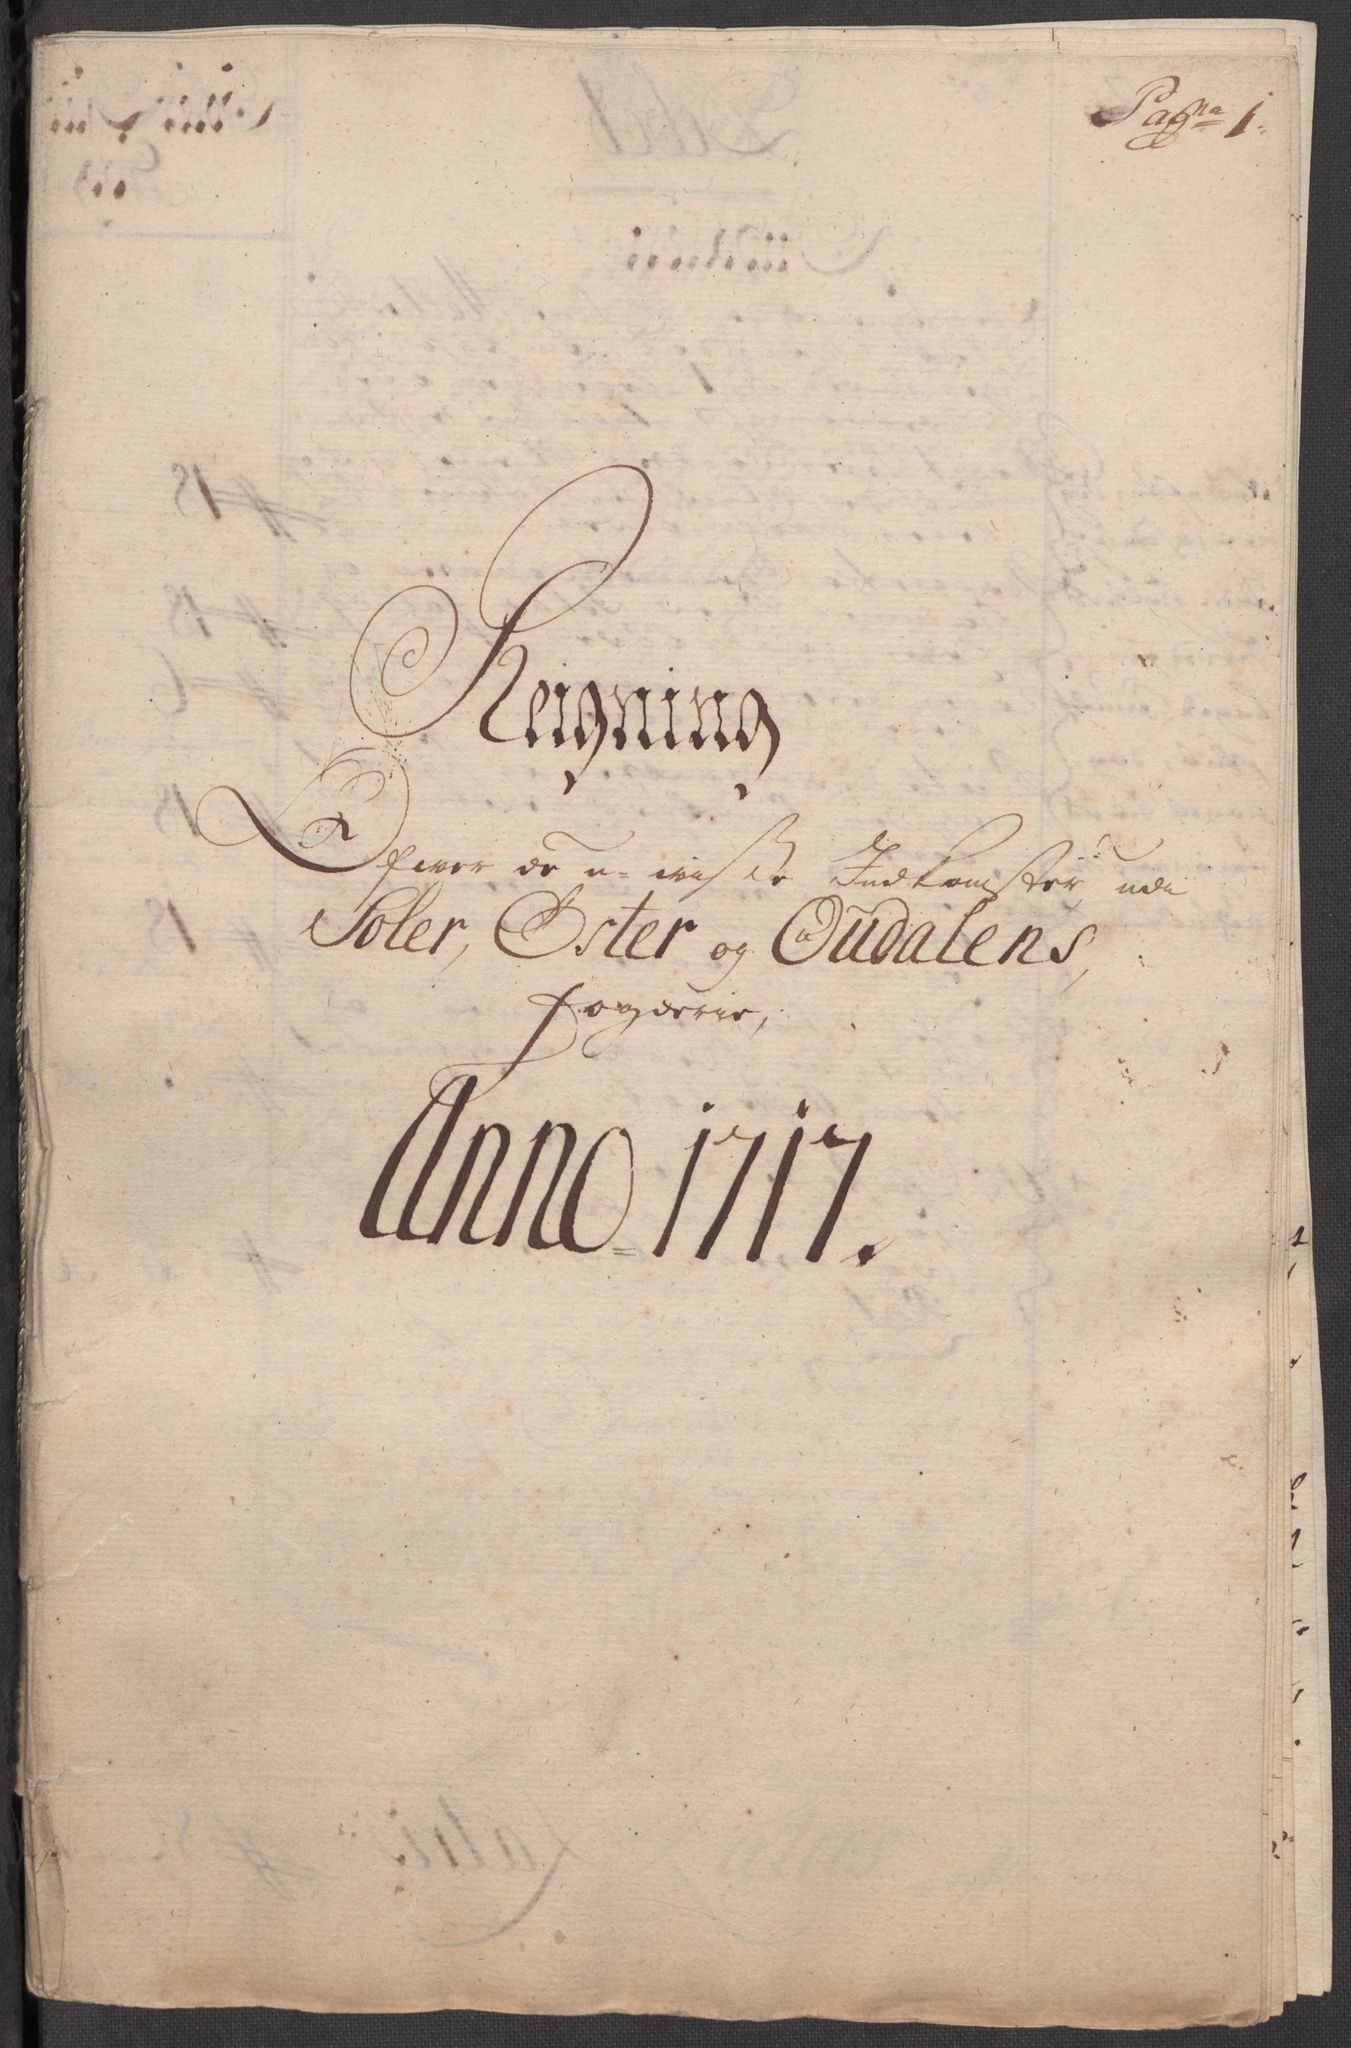 Pagna 1.
Reigning
Ofwer de u-wisse Indkomster udi
Soler, Øster og Oudalens,
fogderie,
Anno 1717.